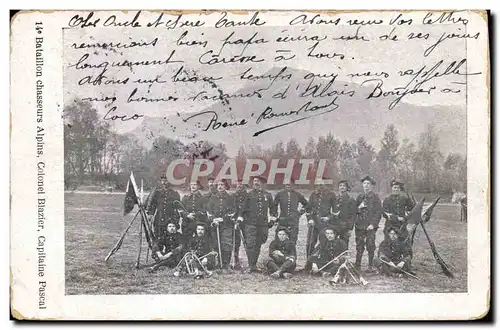 Cher Oncle et Chère Tante Avons reçu vos lettres
remercions bien papa écrira un de ses jours
longuement Caresse à tous.
Avons un beau temps qui nous rappelle
nos bonnes vacances d'Alais Bonjour à
Coco
René
CPARPHIL
14e Bataillon chasseurs Alpins, Colonel Blazier, Capitaine Pascal